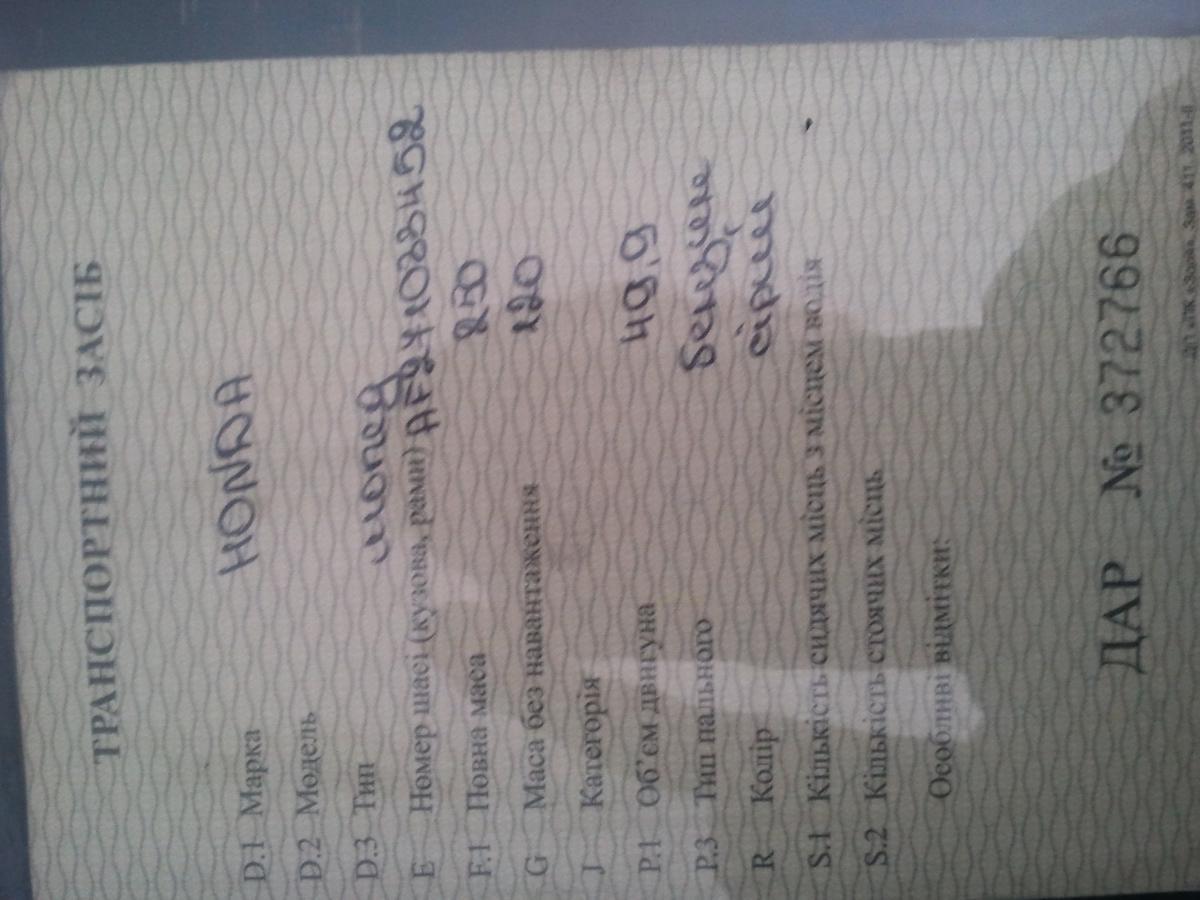 ТРАНСПОРТНИЙ ЗАСІБ
D.1 Марка HONDA
D.2 Модель
D.3 Тип мопед
E Номер шасі (кузова, рами)
F.1 Повна маса 250
G Маса без навантаження 120
J Категорія
P.1 Об'єм двигуна 49.9
P.3 Тип пального бензин
R Колір сірий
S.1 Кількість сидячих місць з місцем водія
S.2 Кількість стоячих місць
Особливі відмітки:
ДАР № 372766
Зам. 411 2011-II